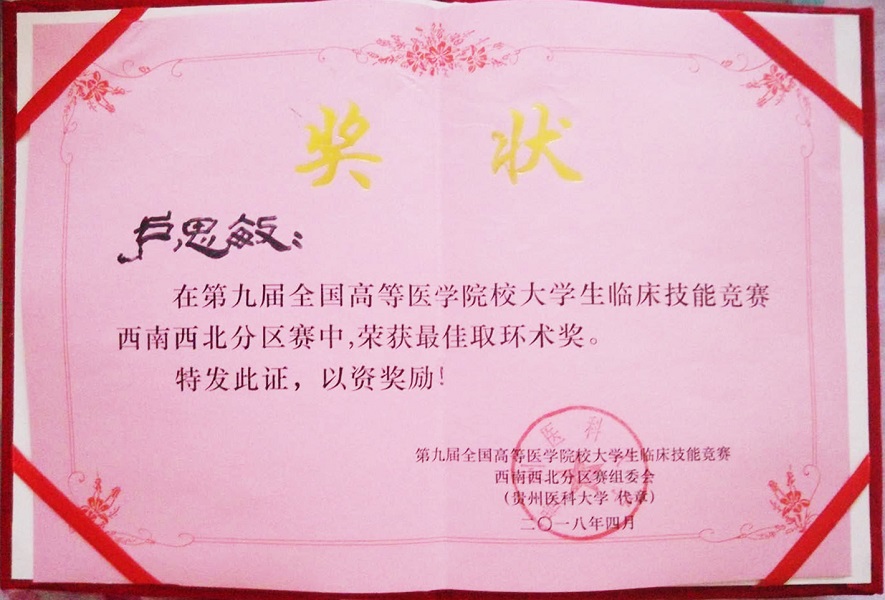 奖 状
卢思敏：
在第九届全国高等医学院校大学生临床技能竞赛
西南西北分区赛中,荣获最佳取环术奖。
特发此证，以资奖励!
第九届全国高等医学院校大学生临床技能竞赛
西南西北分区赛组委会
(贵州医科大学 代章)
二〇一八年四月
医科